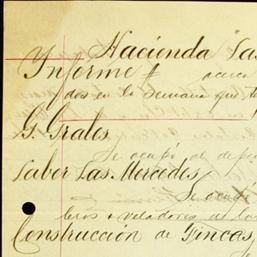 Hacienda "Las
Informe # acerca
dos en la semana que te
G. Grales.
Se ocupó al depe
Saber Las Mercedes
Se ocupó
bros + veladores al
Construcción de Fincas